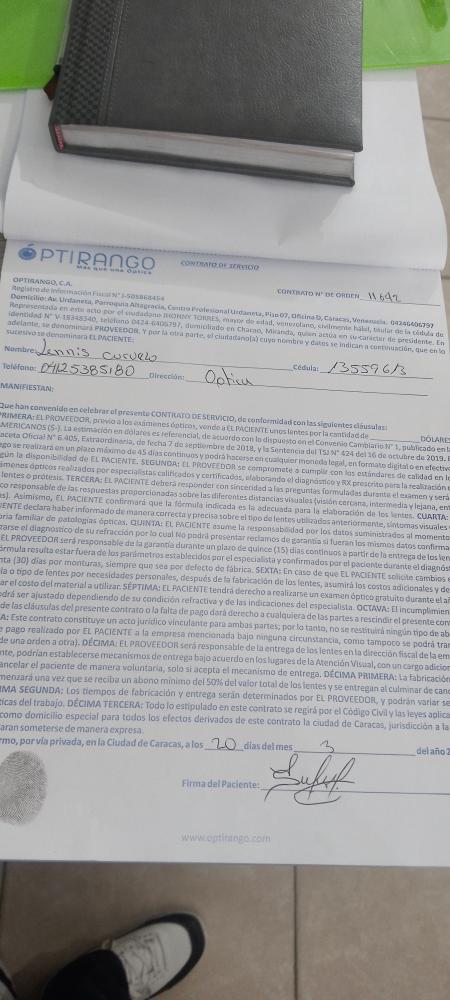 ÓPTIRANGO
Más que una Óptica
CONTRATO DE SERVICIO
OPTIRANGO, C.A.
CONTRATO N° DE ORDEN 11642
Registro de Información Fiscal N° J-505868454
Domicilio: Av. Urdaneta, Parroquia Altagracia, Centro Profesional Urdaneta, Piso 07, Oficina D, Caracas, Venezuela. 04246406797
Representada en este acto por el ciudadano JHONNY TORRES, mayor de edad, venezolano, civilmente hábil, titular de la cédula de
identidad N° V-18348340, teléfono 0424-6406797, domiciliado en Chacao, Miranda, quien actúa en su carácter de presidente. En
adelante, se denominará PROVEEDOR. Y por la otra parte, el ciudadano(a) cuyo nombre y datos se indican a continuación, que en lo
sucesivo se denominará EL PACIENTE:
Nombre: Lennis Cuervo Cédula: 13559613
Teléfono: 04125385180 Dirección: Optica
MANIFIESTAN:
Que han convenido en celebrar el presente CONTRATO DE SERVICIO, de conformidad con las siguientes cláusulas:
PRIMERA: EL PROVEEDOR, previo a los exámenes ópticos, vende a EL PACIENTE unos lentes por la cantidad de DÓLARES
AMERICANOS ($-). La estimación en dólares es referencial, de acuerdo con lo dispuesto en el Convenio Cambiario N° 1, publicado en l
aceta Oficial N° 6.405, Extraordinaria, de fecha 7 de septiembre de 2018, y la Sentencia del TSJ N° 424 del 16 de octubre de 2019. E
ago se realizará en un plazo máximo de 45 días continuos y podrá hacerse en cualquier moneda legal, en formato digital o en efectiv
gún la disponibilidad de EL PACIENTE. SEGUNDA: EL PROVEEDOR se compromete a cumplir con los estándares de calidad en l
ámenes ópticos realizados por especialistas calificados y certificados, elaborando el diagnóstico y RX prescrito para la realización
lentes o prótesis. TERCERA: EL PACIENTE deberá responder con sinceridad a las preguntas formuladas durante el examen y será
co responsable de las respuestas proporcionadas sobre las diferentes distancias visuales (visión cercana, intermedia y lejana, ent
as). Asimismo, EL PACIENTE confirmará que la fórmula indicada es la adecuada para la elaboración de los lentes. CUARTA:
IENTE declara haber informado de manera correcta y precisa sobre el tipo de lentes utilizados anteriormente, síntomas visuales
oria familiar de patologías ópticas. QUINTA: EL PACIENTE asume la responsabilidad por los datos suministrados al momento
zarse el diagnostico de su refracción por lo cual No podrá presentar reclamos de garantía si fueran los mismos datos confirma
EL PROVEEDOR será responsable de la garantía durante un plazo de quince (15) días continuos a partir de la entrega de los len
órmula resulta estar fuera de los parámetros establecidos por el especialista y confirmados por el paciente durante el diagnós
nta (30) días por monturas, siempre que sea por defecto de fábrica. SEXTA: En caso de que EL PACIENTE solicite cambios e
la o tipo de lentes por necesidades personales, después de la fabricación de los lentes, asumirá los costos adicionales y de
ar el costo del material a utilizar. SÉPTIMA: EL PACIENTE tendrá derecho a realizarse un examen óptico gratuito durante el añ
odrá ser ajustado dependiendo de su condición refractiva y de las indicaciones del especialista. OCTAVA: El incumplimien
de las cláusulas del presente contrato o la falta de pago dará derecho a cualquiera de las partes a rescindir el presente con
A: Este contrato constituye un acto jurídico vinculante para ambas partes; por lo tanto, no se restituirá ningún tipo de ab
e pago realizado por EL PACIENTE a la empresa mencionada bajo ninguna circunstancia, como tampoco se podrá tran
de una orden a otra). DÉCIMA: EL PROVEEDOR será responsable de la entrega de los lentes en la dirección fiscal de la em
nte, podrían establecerse mecanismos de entrega bajo acuerdo en los lugares de la Atención Visual, con un cargo adicion
ancelar el paciente de manera voluntaria, solo si acepta el mecanismo de entrega. DÉCIMA PRIMERA: La fabricación
menzará una vez que se reciba un abono mínimo del 50% del valor total de los lentes y se entregan al culminar de can
IMA SEGUNDA: Los tiempos de fabricación y entrega serán determinados por EL PROVEEDOR, y podrán variar se
ticas del trabajo. DÉCIMA TERCERA: Todo lo estipulado en este contrato se regirá por el Código Civil y las leyes aplica
como domicilio especial para todos los efectos derivados de este contrato la ciudad de Caracas, jurisdicción a la
aran someterse de manera expresa.
rmo, por vía privada, en la Ciudad de Caracas, a los 20 días del mes 3 del año 2
Firma del Paciente:
www.optirango.com